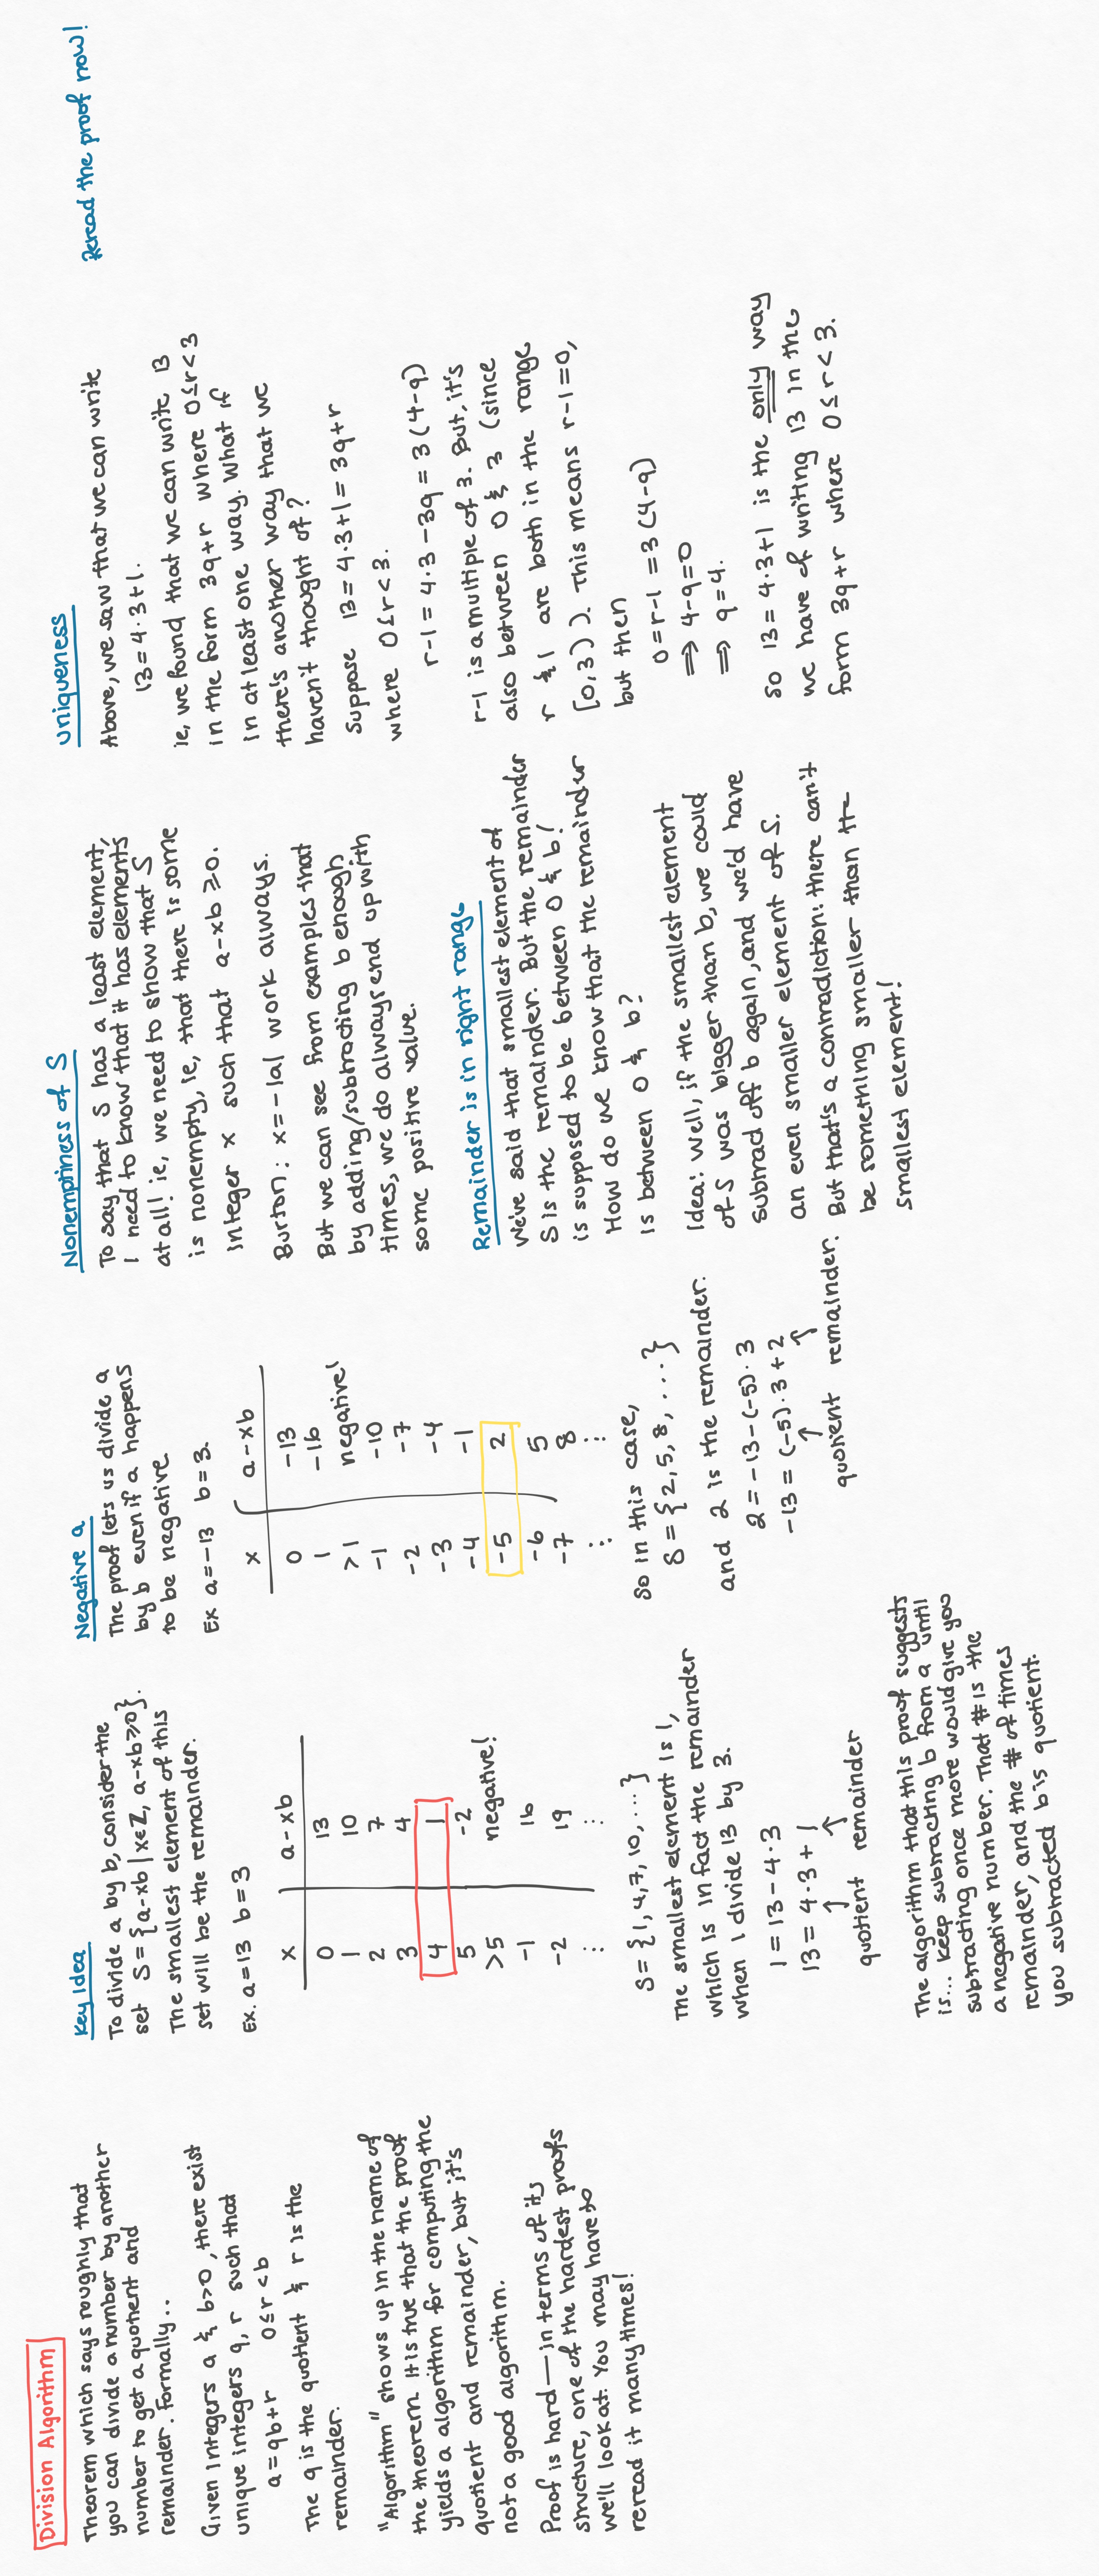 Division Algorithm
Theorem which says roughly that
you can divide a number by another
number to get a quotient and
remainder. Formally..
Given integers a & b>0, there exist
unique integers q, r such that
a=qb+r 0≤r<b
The q is the quotient & r is the
remainder.
"Algorithm" shows up in the name of
the theorem. It is true that the proof
yields a algorithm for computing the
quotient and remainder, but it's
not a good algorithm.
Proof is hard — in terms of its
structure, one of the hardest proofs
we'll look at. You may have to
reread it many times!
Key Idea
To divide a by b, consider the
set S = {a-xb | x∈ℤ, a-xb≥0}.
The smallest element of this
set will be the remainder.
Ex. a=13 b=3
x a-xb
0 13
1 10
2 7
3 4
4 1
5 -2
>5 negative!
-1 16
-2 19
⋮ ⋮
S= {1,4,7,10, ...}
The smallest element is 1,
which is in fact the remainder
when I divide 13 by 3.
1 = 13 - 4·3
13 = 4·3 + 1
↑ ↑
quotient remainder
The algorithm that this proof suggests
is... keep subtracting b from a until
subtracting once more would give you
a negative number. That # is the
remainder, and the # of times
you subtracted b is quotient.
Negative a
The proof lets us divide a
by b even if a happens
to be negative.
Ex a=-13 b=3.
x a-xb
0 -13
1 -16
>1 negative!
-1 -10
-2 -7
-3 -4
-4 -1
-5 2
-6 5
-7 8
⋮ ⋮
So in this case,
S = {2,5,8, ...}
and 2 is the remainder.
2 = -13-(-5)·3
-13 = (-5)·3 + 2
↑ ↑
quotient remainder.
Nonemptiness of S
To say that S has a least element,
I need to know that it has elements
at all! ie, we need to show that S
is nonempty, ie, that there is some
integer x such that a-xb ≥0.
Burton: x=-|a| work always.
But we can see from examples that
by adding/subtracting b enough
times, we do always end up with
some positive value.
Remainder is in right range
We've said that smallest element of
S is the remainder. But the remainder
is supposed to be between 0 & b!
How do we know that the remainder
is between 0 & b?
Idea: Well, if the smallest element
of S was bigger than b, we could
subtract off b again, and we'd have
an even smaller element of S.
But that's a contradiction: there can't
be something smaller than the
smallest element!
Uniqueness
Above, we saw that we can write
13=4·3+1.
ie, we found that we can write 13
in the form 3q+r where 0≤r<3
in at least one way. What if
there's another way that we
haven't thought of?
Suppose 13=4·3+1=3q+r
where 0≤r<3.
r-1 = 4·3-3q = 3(4-q)
r-1 is a multiple of 3. But, it's
also between 0 & 3 (since
r & 1 are both in the range
[0,3)). This means r-1=0,
but then
0=r-1 =3(4-q)
⟹ 4-q=0
⟹ q=4.
So 13=4·3+1 is the only way
we have of writing 13 in the
form 3q+r where 0≤r<3.
Reread the proof now!